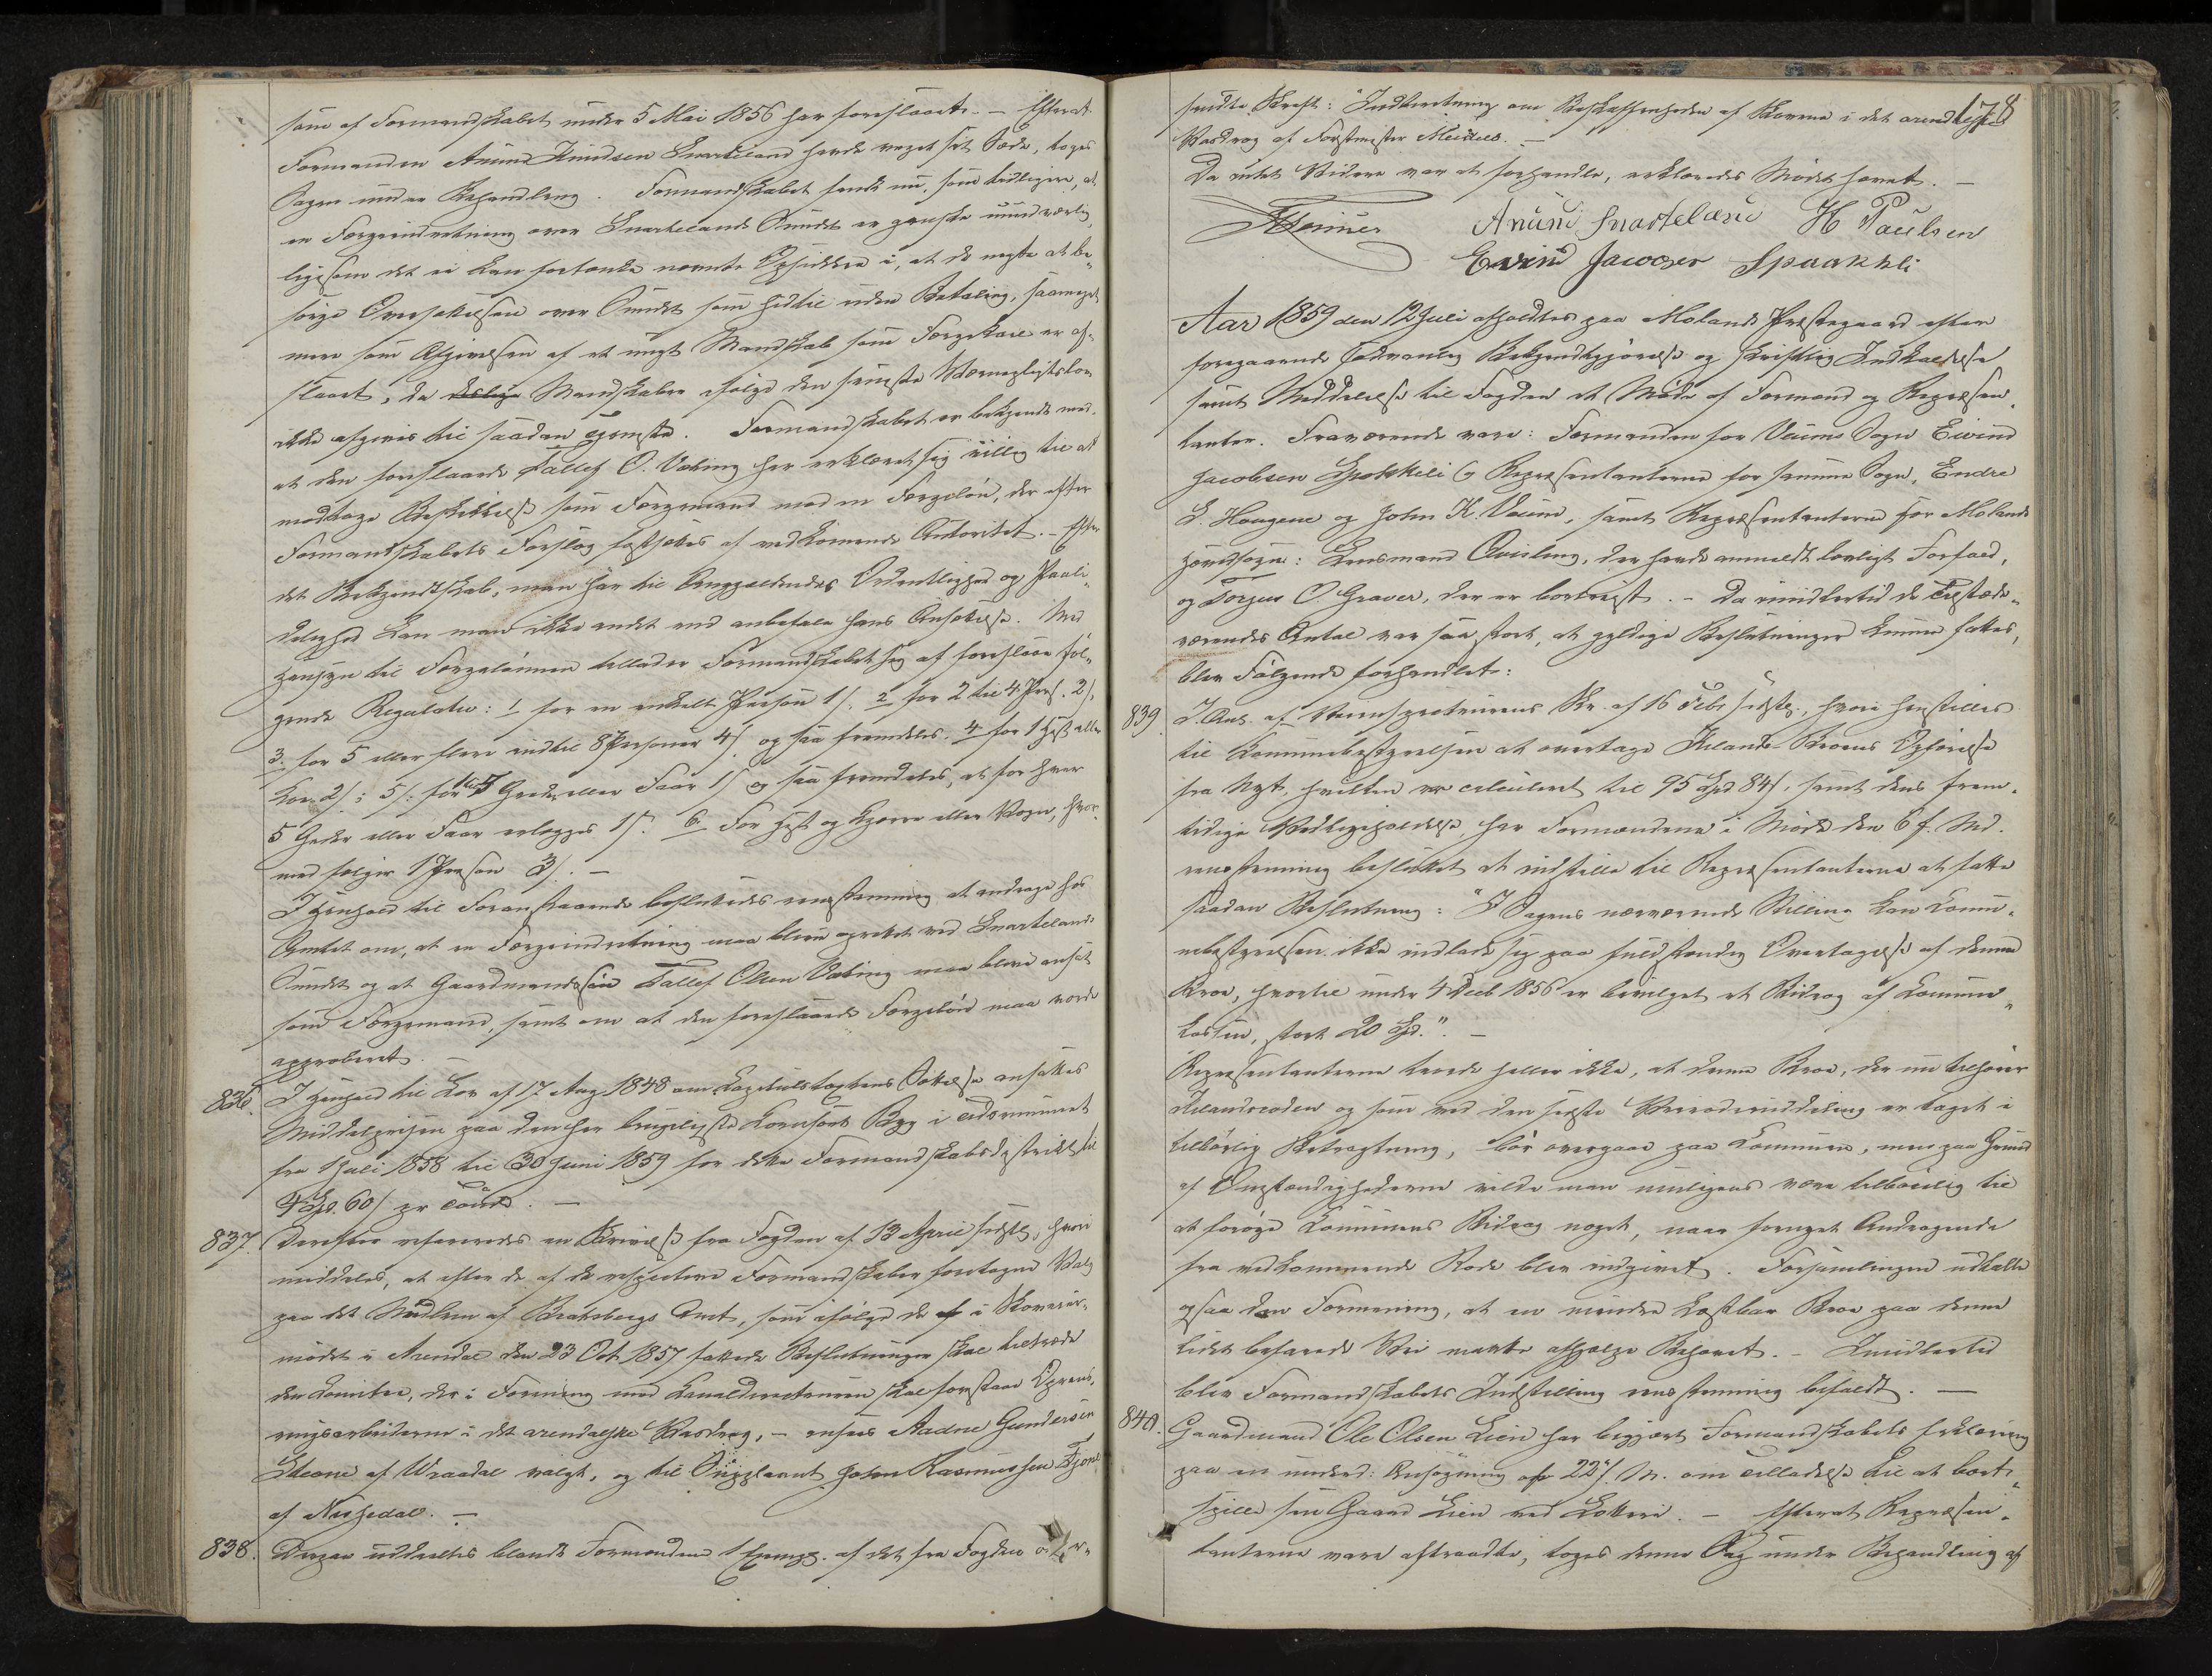 som af Formandskabet under 5 Mai 1856 har foreslaaet. – Efterat
Formanden Anund Knudsen Svarteland havde veget sit Sæde, toges
Sagen under Behandling. Formandskabet fandt nu, som tidligere, at
en Færgeindretning over Svartelands Sundet er ganske uundværlig
ligesom det ei kan fortænke nævnte Opsiddere i, at de negte at be-
sørge Overskydsen over Sundet som hidtil uden Betaling, saameget
mere som Afgivelsen af et ungt Mandskab som Færgekarl er af-
slaaet, da Mandskaber ifølge den seneste Værnepligtslov
ikke afgives til saadan Tjeneste. Formandskabet er bekjendt med
at den foreslaaede Tallef O. Væting har erklæret sig villig til at
modtage Beskikkelse som Færgemand mod en Færgeløn, der efter
Formandskabets Forslag fastsættes af vedkommende Autoritet. – Efter
det Bekjendtskab, man har til Angjældendes Ordentlighed og Paali-
delighed kan man ikke andet end anbefale hans Ansættelse. Med
Hensyn til Færgelønnen tillader Formandskabet sig at foreslaae føl-
gende Regulativ: 1 for en enkelt Person 1 s. 2 for 2 til 4 Pers. 2 s.
3. for 5 eller flere indtil 8 Personer 4 s og saa fremdeles. 4 for 1 Hest eller
Ko 2 s: 5 s: for til 5 Geder eller Faar 1 s og saa fremdeles, at for hver
5 Geder eller Faar erlægges 1 s. 6. For Hest og Kjærre eller Vogn, hvor-
med følger 1 Person 3 s. –
I Henhold til Foranstaaende besluttedes eenstemmig at andrage hos
Amtet om, at en Færgeindretning maa blive oprettet ved Svartelands
Sundet og at Gaardmandssøn Tallef Olsen Væting maa blive ansat
som Færgemand, samt om at den foreslaaede Færgeløn maa vorde
approberet. –
836. I Henhold til Lov af 17 Aug 1848 om Capitelstaxtens ansættes
Middelprisen paa den her brugeligste Kornsort Byg i Tidsrummet
fra 1 Juli 1858 til 30 Juni 1859 for dette Formandskabsdistrikt til
4 Spd. 60 s pr Tønde. –
837. Derefter refereredes en Skrivelse fra Fogden af 13 April sidstl, hvori
meddeles, at efter de af de respective Formandskaber foretagne Valg
paa det Medlem af Bratsbergs Amt, som ifølge de i
mødet i Arendal den 23 Oct 1857 fattede Beslutninger skal tiltræde
den Komitee, der i Forening med Canaldirecteuren skal forestaae Oprens-
ningsarbeiderne i det arendalske Vasdrag, – ansees Aadne Gundersen
af Vraadal valgt, og til Suppleant John Rasmussen Tjønn
af Nissedal. –
838. Derpaa uddeeltes blandt Formændene 1 Exempl. af det fra Fogden over-
178
sendte Skrift: "Indberetning om Beskaffenheden af Skovene i det arendalske
Vasdrag af Forstmester Meidell. –
Da intet Videre var at forhandle, erklæredes Mødet hævet. –
Anund Svarteland H Paulsen
Evind Jacobsen Spaakkli
Aar 1859 den 12 Juli afholdtes paa Molands Præstegaard efter
foregaaende sædvanlig Bekjendtgjørelse og skriftlig Indkaldelse
samt Meddelelse til Fogden et Møde af Formænd og Repræsen-
tanter. Fraværende vare: Formanden for Veums Sogn Eivind
Jacobsen Spokkeli og Repræsentanterne for samme Sogn, Endre
S. Haugene og John K. Veum, samt Repræsentanterne for Molands
Hovedsogn: Lensmand Qvisling, der havde anmeldt lovligt Forfald,
og Torgeus O Graver, der er bortreist. – Da imidlertid de Tilstede-
værendes Antal var saa stort, at gyldige Beslutninger kunne fattes,
blev Følgende forhandlet:
839. I Anl. af Veiinspecteurens Skr. af 16 Febr sidstl., hvori henstilles
til Kommunebestyrelsen at overtage Broens Opførelse
fra Nyt, hvilken er calculeret til 95 Spd 84 s, samt dens frem-
tidige Vedligeholdelse, har Formændene i Møde den 6 f. Md.
eenstemmig besluttet at indstille til Repræsentanterne at fatte
saadan Beslutning: "I Sagens nærværende Stilling kan Kommu-
nebestyrelsen ikke indlade sig paa fuldstændig Overtagelse af denne
Bro, hvortil under 4 Decb 1856 er bevilget et Bidrag af Commune-
kassen, stort 20 Spd." –
Repræsentanterne troede heller ikke, at denne Broe, der nu tilhører
og som ved den sidste Veirodeinddeling er taget i
tilbørlig Betragtning, bør overgaae paa Communen, men paa Grund
af Omstændighederne vilde man muligens være tilbøielig til
at forøge Communens Bidrag noget, naar fornyet Andragende
fra vedkommende Rode blev indgivet. Forsamlingen udtalte
ogsaa den Formening, at en mindre kostbar Broe paa denne
lidet befarede Vei maatte afhjælpe Behovet. – Imidlertid
blev Formandskabets Indstilling eenstemmig bifaldt. –
840. Gaardmand Ole Olsen Lien har begjært Formandskabets Erklæring
paa en underd: Ansøgning af 22 f. M. om Tilladelse til at bort-
spille sin Gaard Lien ved Lotteri. – Efterat Repræsen-
tanterne vare aftraadte, toges denne Sag under Behandling af